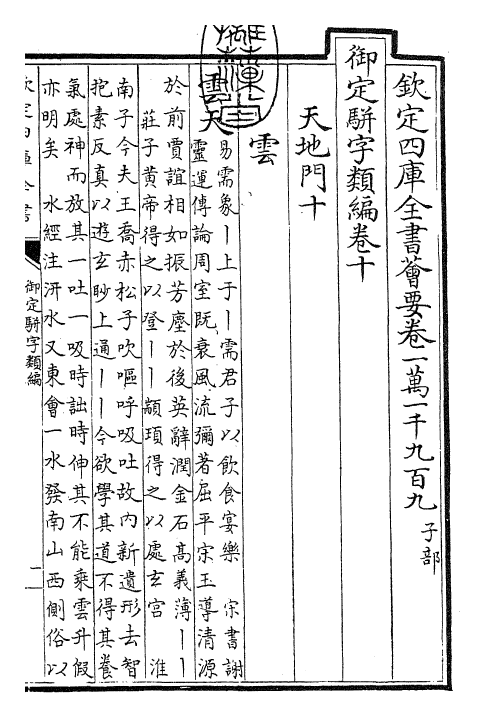 欽定四庫全書薈要卷一萬一千九百九 子部
御定駢字類編卷十
天地門十
雲
雲天
易需象丨上于丨需君子以飲食宴樂 宋書謝
靈運傳論周室既衰風流彌著屈平宋玉導清源
於前賈誼相如振芳塵於後英辭潤金石高義薄丨丨
莊子黃帝得之以登丨丨顓頊得之以處玄宮 淮
南子今夫王喬赤松子吹嘔呼吸吐故内新遺形去智
抱素反真以遊玄眇上通丨丨今欲學其道不得其養
氣處神而放其一吐一吸時詘時伸其不能乘雲升假
亦明矣 水經注汧水又東會一水發南山西側俗以
御定駢字類編